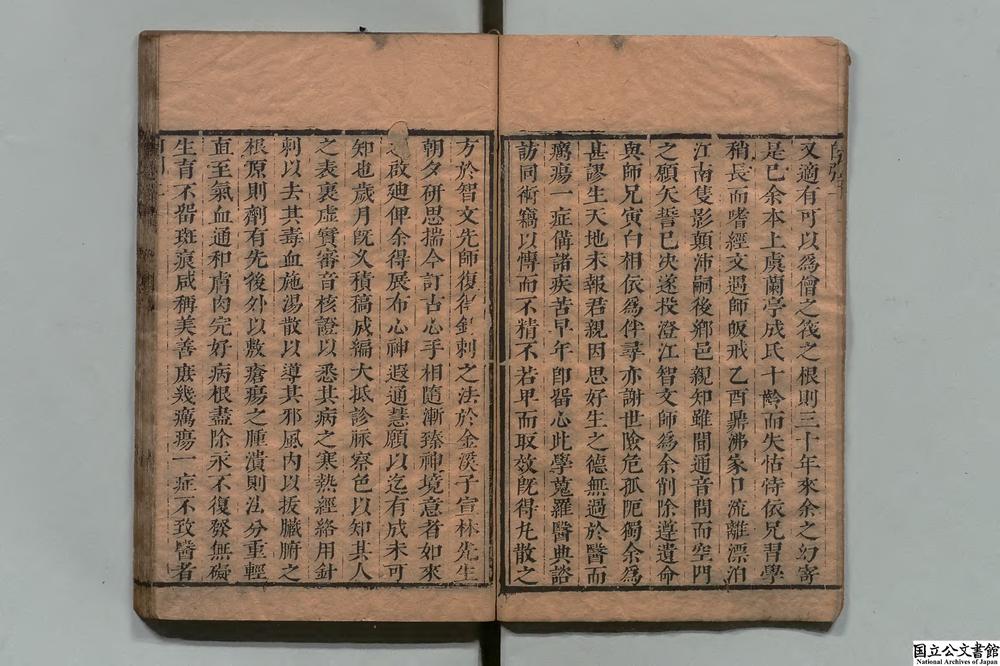 又適有可以爲僧之筏之根則三十年來余之幻寄
是已余本上虞蘭亭成氏十齡而失怙恃依兄習學
稍長而嗜經文遇師皈戒乙酉鼎沸家口流離漂泊
江南隻影顛沛嗣後鄉邑親知雖間通音問而空門
之願矢誓已决遂投澄江智文師爲余削除遵遺命
與師兄寅白相依爲伴尋亦謝世險危孤阨獨余爲
甚謬生天地未報君親因思好生之德無過於醫而
癘瘍一症備諸疾苦早年卽畱心此學蒐羅醫典諮
訪同術竊以慱而不精不若卑而取效旣得九散之
方於智文先師復得針刺之法於金溪子宣林先生
朝夕研思揣今訂古心手相隨漸臻神境意者如來
啟廸俾余得展布心神遐通慧願以迄有成未可
知也歲月旣久積稿成編大抵診脉察色以知其人
之表裏虛實審音核證以悉其病之寒熱經絡用針
刺以去其毒血施湯散以導其邪風内以拔臟腑之
根原則劑有先後外以敷瘡瘍之腫潰則法分重輕
直至氣血通和膚肉完好病根盡除永不復發無礙
生育不畱斑痕咸稱美善庶幾癘瘍一症不致醫者
国立公文書館
National Archives of Japan